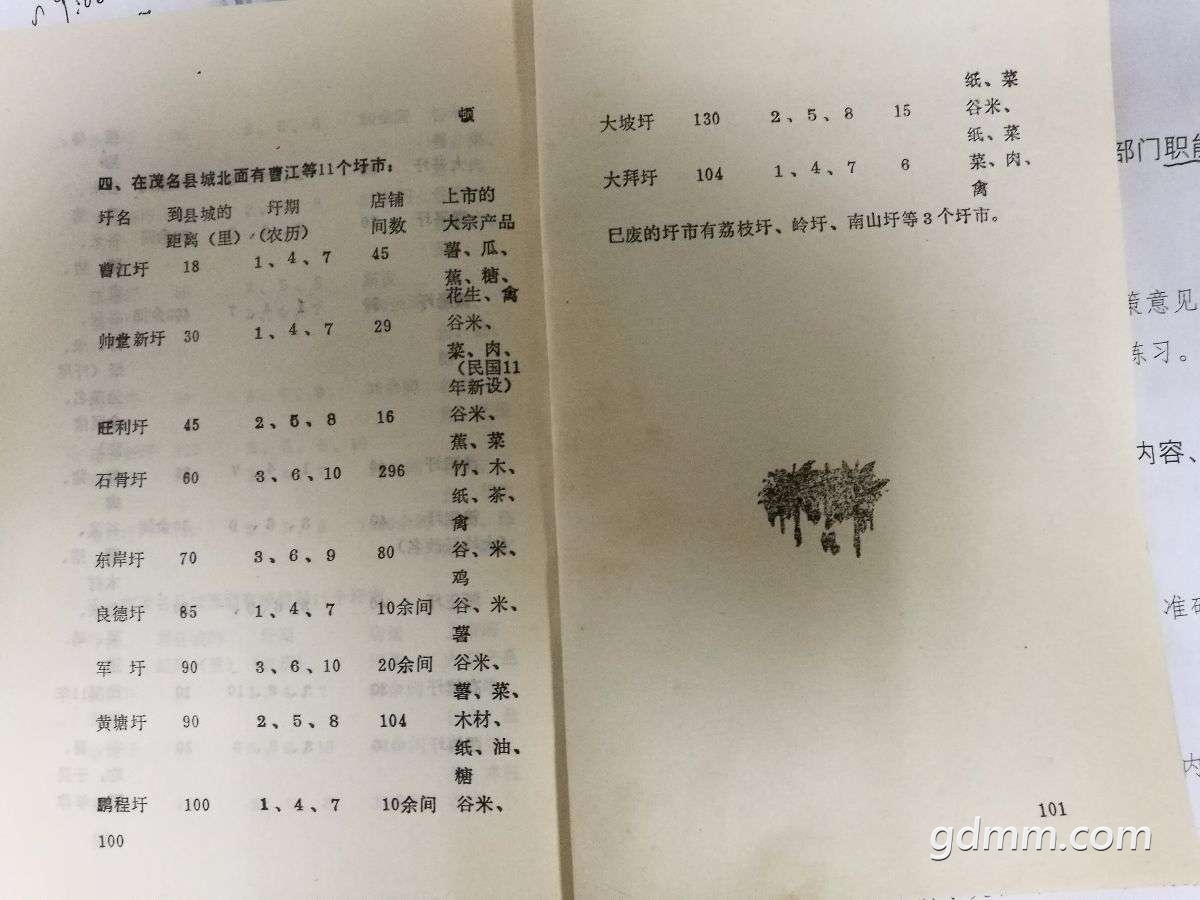 顿
四、在茂名县城北面有曹江等11个圩市：
圩名 到县城的 圩期 店铺 上市的
距离（里） （农历） 间数 大宗产品
曹江圩 18 1、4、7 45 薯、瓜、
蕉、糖、
花生、禽
帅堂新圩 30 1、4、7 29 谷米、
菜、肉、
（民国11
年新设）
旺利圩 45 2、5、8 16 谷米、
蕉、菜
石骨圩 60 3、6、10 296 竹、木、
纸、茶、
禽
东岸圩 70 3、6、9 80 谷、米、
鸡
良德圩 85 1、4、7 10余间 谷、米、
薯
军 圩 90 3、6、10 20余间 谷米、
薯、菜、
黄塘圩 90 2、5、8 104 木材、
纸、油、
糖
鹏程圩 100 1、4、7 10余间 谷米、
100
纸、菜
大坡圩 130 2、5、8 15 谷米、
纸、菜
大拜圩 104 1、4、7 6 菜、肉、
禽
已废的圩市有荔枝圩、岭圩、南山圩等3个圩市。
101
部门职能
策意见
练习。
内容、
准确
内
gdmm.com